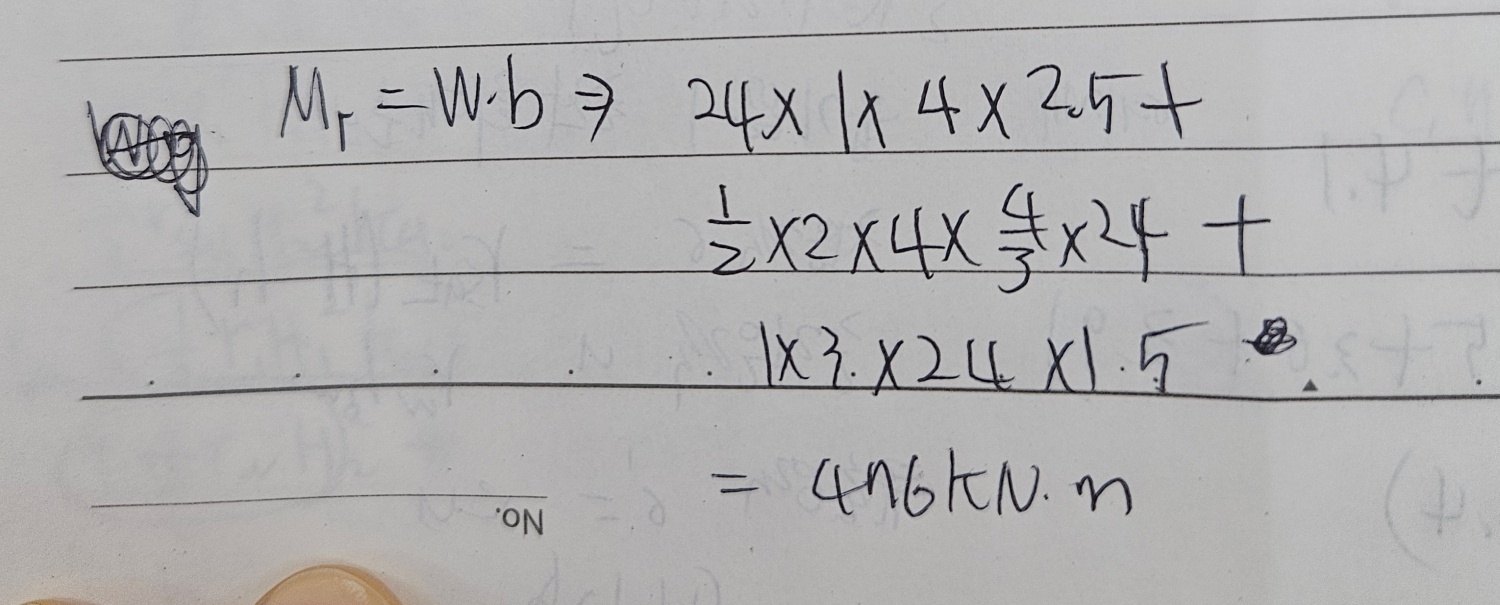 Mr = W·b ⇒ 24 × 1 × 4 × 2.5 +
1/2 × 2 × 4 × 4/3 × 24 +
1 × 3 × 24 × 1.5
= 476 kN·m
No.